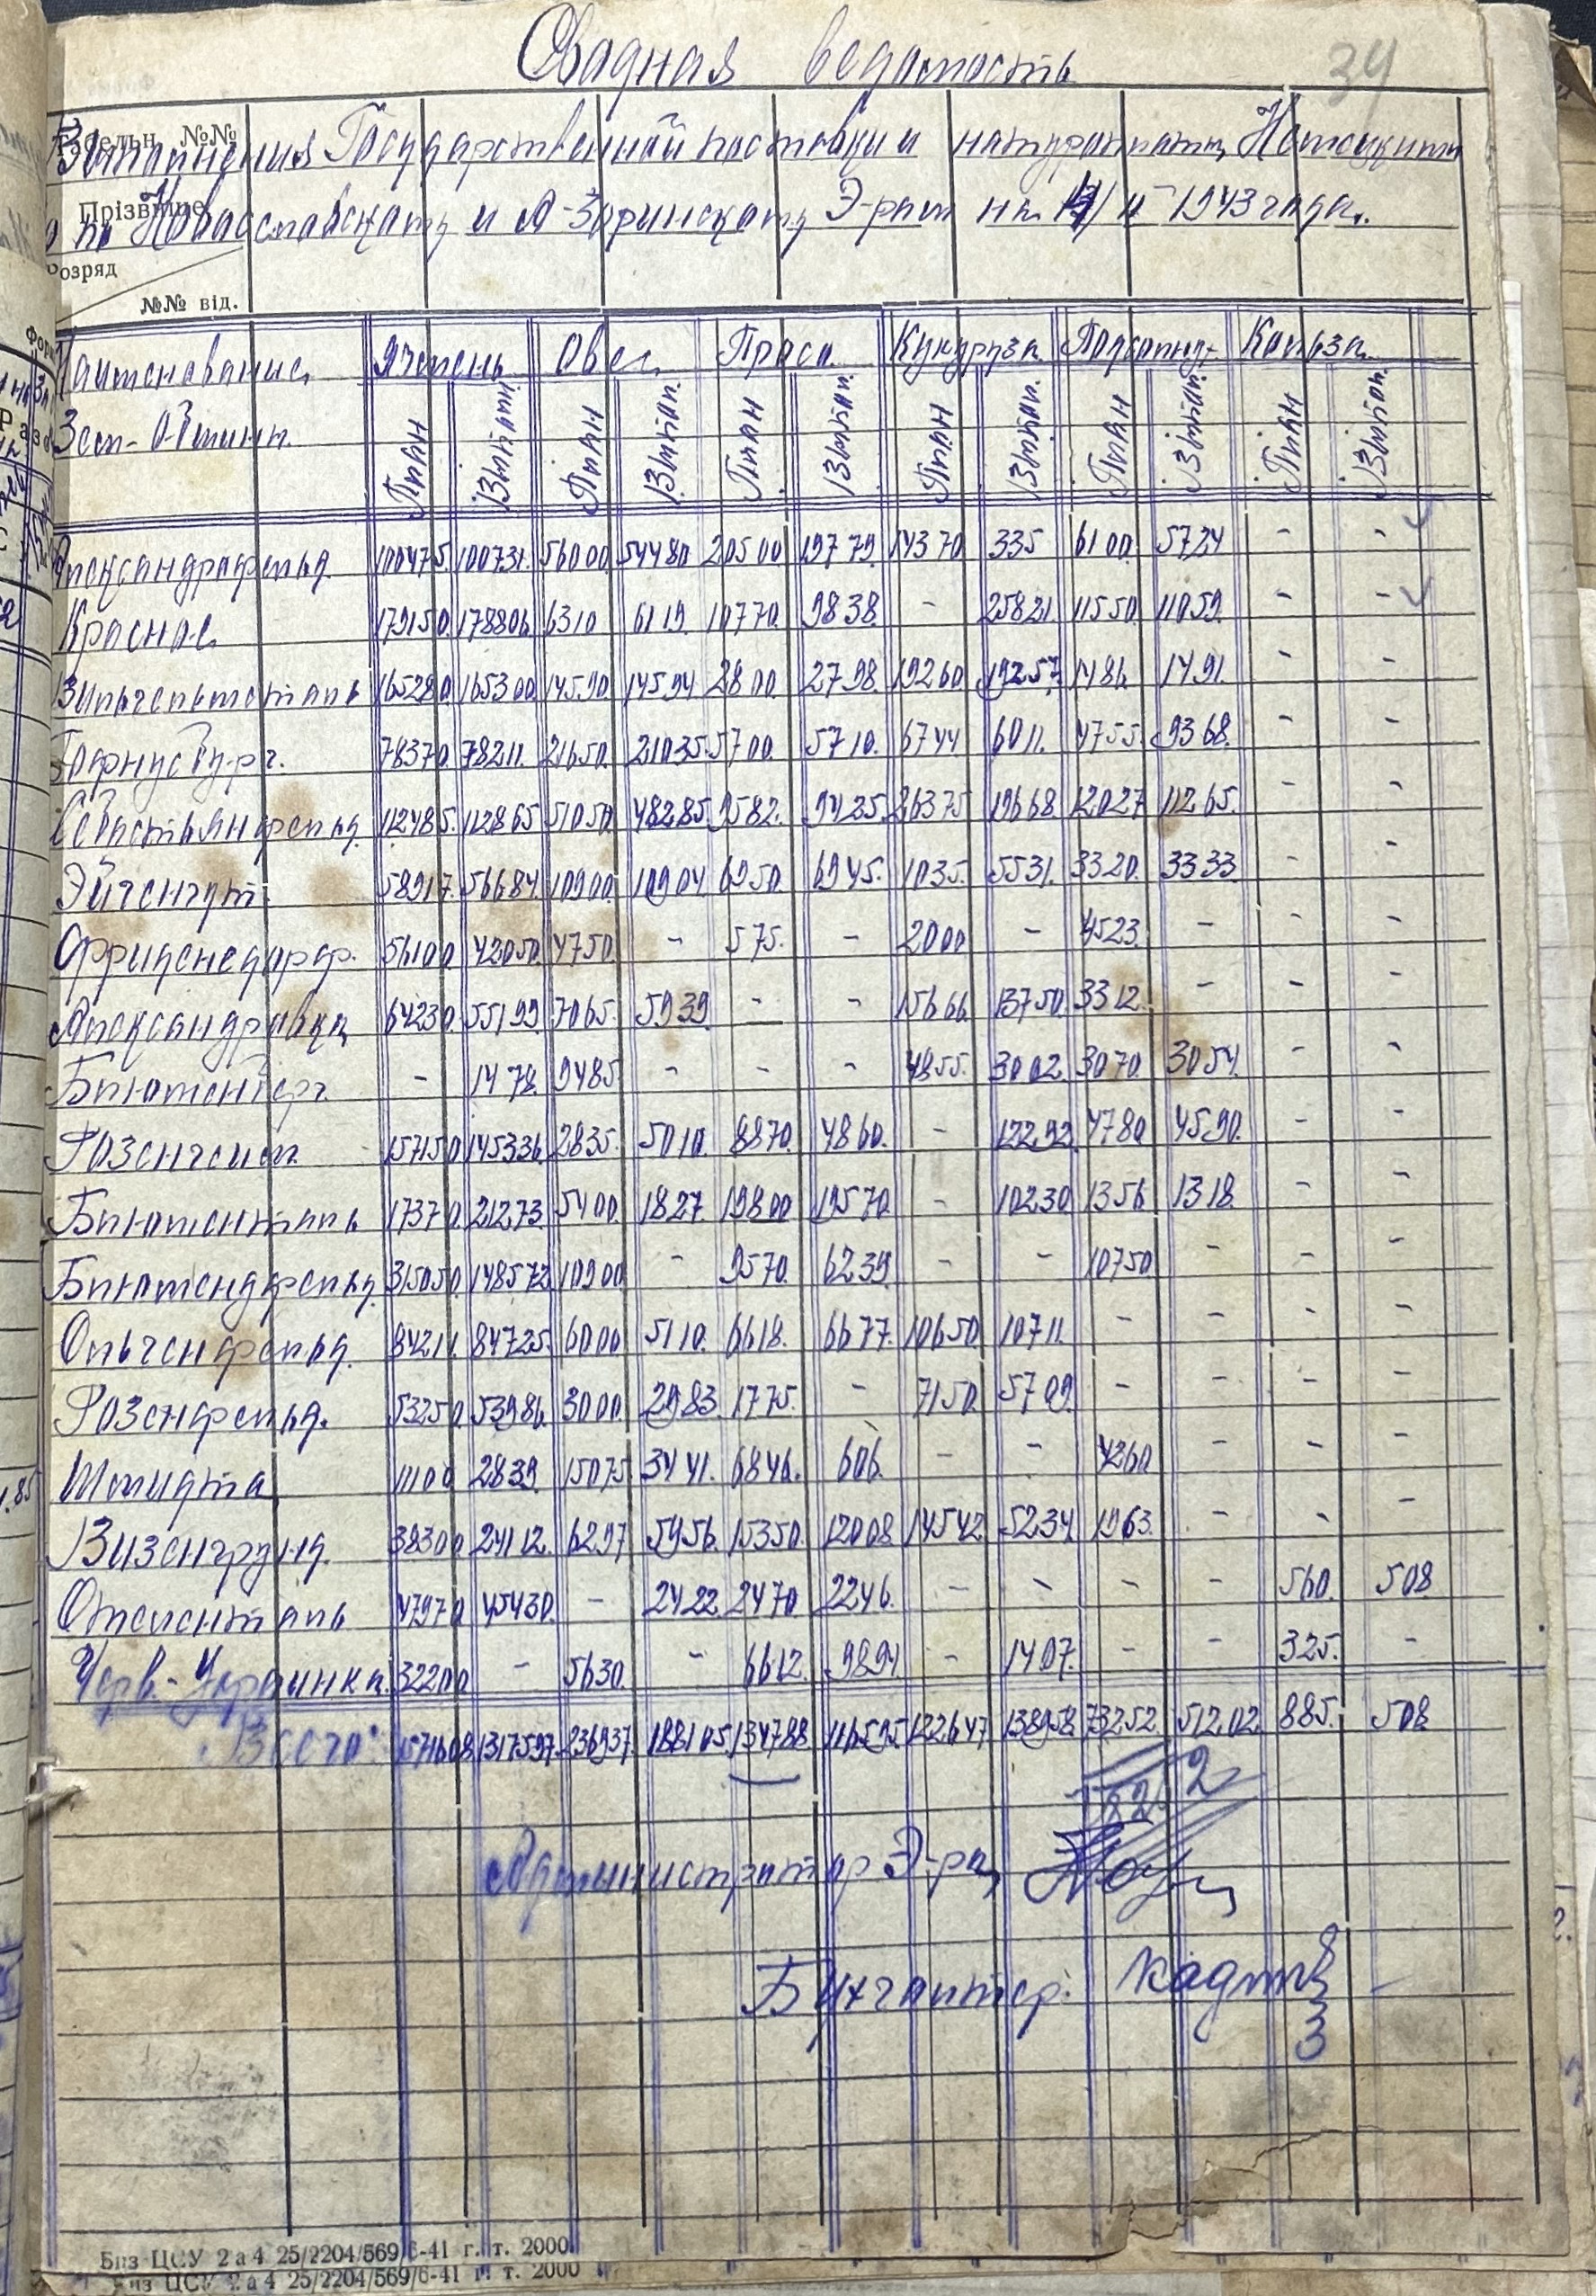 Сводная ведомость
34
Табельн. №№
Выполнения Государственной поставки и натуроплаты
Прізвище
по Новозлатопскому
и А-Зоринскому Э-рам на 1/II-1943 года.
Розряд
№№ від.
Наименование Ячмень Овес Проса Кукуруза Подсолнух Кользa
Зем-общин План Выполн. План Выпол. План Выпол. План Выпол. План Выпол. План Выпол.
Александрфельд 100475 100731 56000 54480 20500 19779 14370 335 6100 5724 - -
Красное 179150 178806 6310 6119 10770 9838 - 25821 11550 11059 - -
Вильгельмсталь 165280 165300 14590 14594 2800 2798 19260 19257 1486 1491 - -
78370 78211 21650 21035 5700 5710 6744 6011 4755 9368 - -
Себастьянфельд 112485 112865 51050 48285 9582 9425 26375 19668 12027 11265 - -
Эйгенгут 58917 56684 10900 10904 6950 6945 1035 5531 3320 3333 - -
Фриденсдорф 56100 42050 4750 - 575 - 2000 - 4523 - - -
Александровка 64230 55199 7065 5939 - - 15666 13750 3312 - - -
Блюменберг - 1478 9485 - - - 4855 3002 3070 3054 - -
Розенгейм 157150 145336 2835 5010 8870 4860 - 12292 4780 4590 - -
Блюменталь 17370 21273 5400 1827 19800 19570 - 10230 1356 1318 - -
Блюменфельд 315050 148572 10900 - 9570 6239 - - 10750 - - -
Ольгенфельд 84211 84725 6000 5110 6618 6677 10650 10711 - - - -
Розенфельд 53250 53986 3000 2983 1775 - 7150 5709 - - - -
Шмидта 11100 2839 15075 3441 6846 606 - - 4260 - - -
Визенгрунд 38300 24112 6297 5956 15350 12008 14542 5234 1963 - - -
47970 45430 - 2422 2470 2246 - - - - 560 508
Черв.-Украинка 32200 - 5630 - 6612 9894 - 1407 - - 325 -
Всего: 1571608 1317597 236937 188105 134788 116595 122647 138958 73252 51202 885 508
Администратор Э-ра
Бухгалтер:
Биз ЦСУ 2 а 4 25/2204/569/6-41 г. т. 2000
Биз ЦСУ 2 а 4 25/2204/569/6-41 г. т. 2000